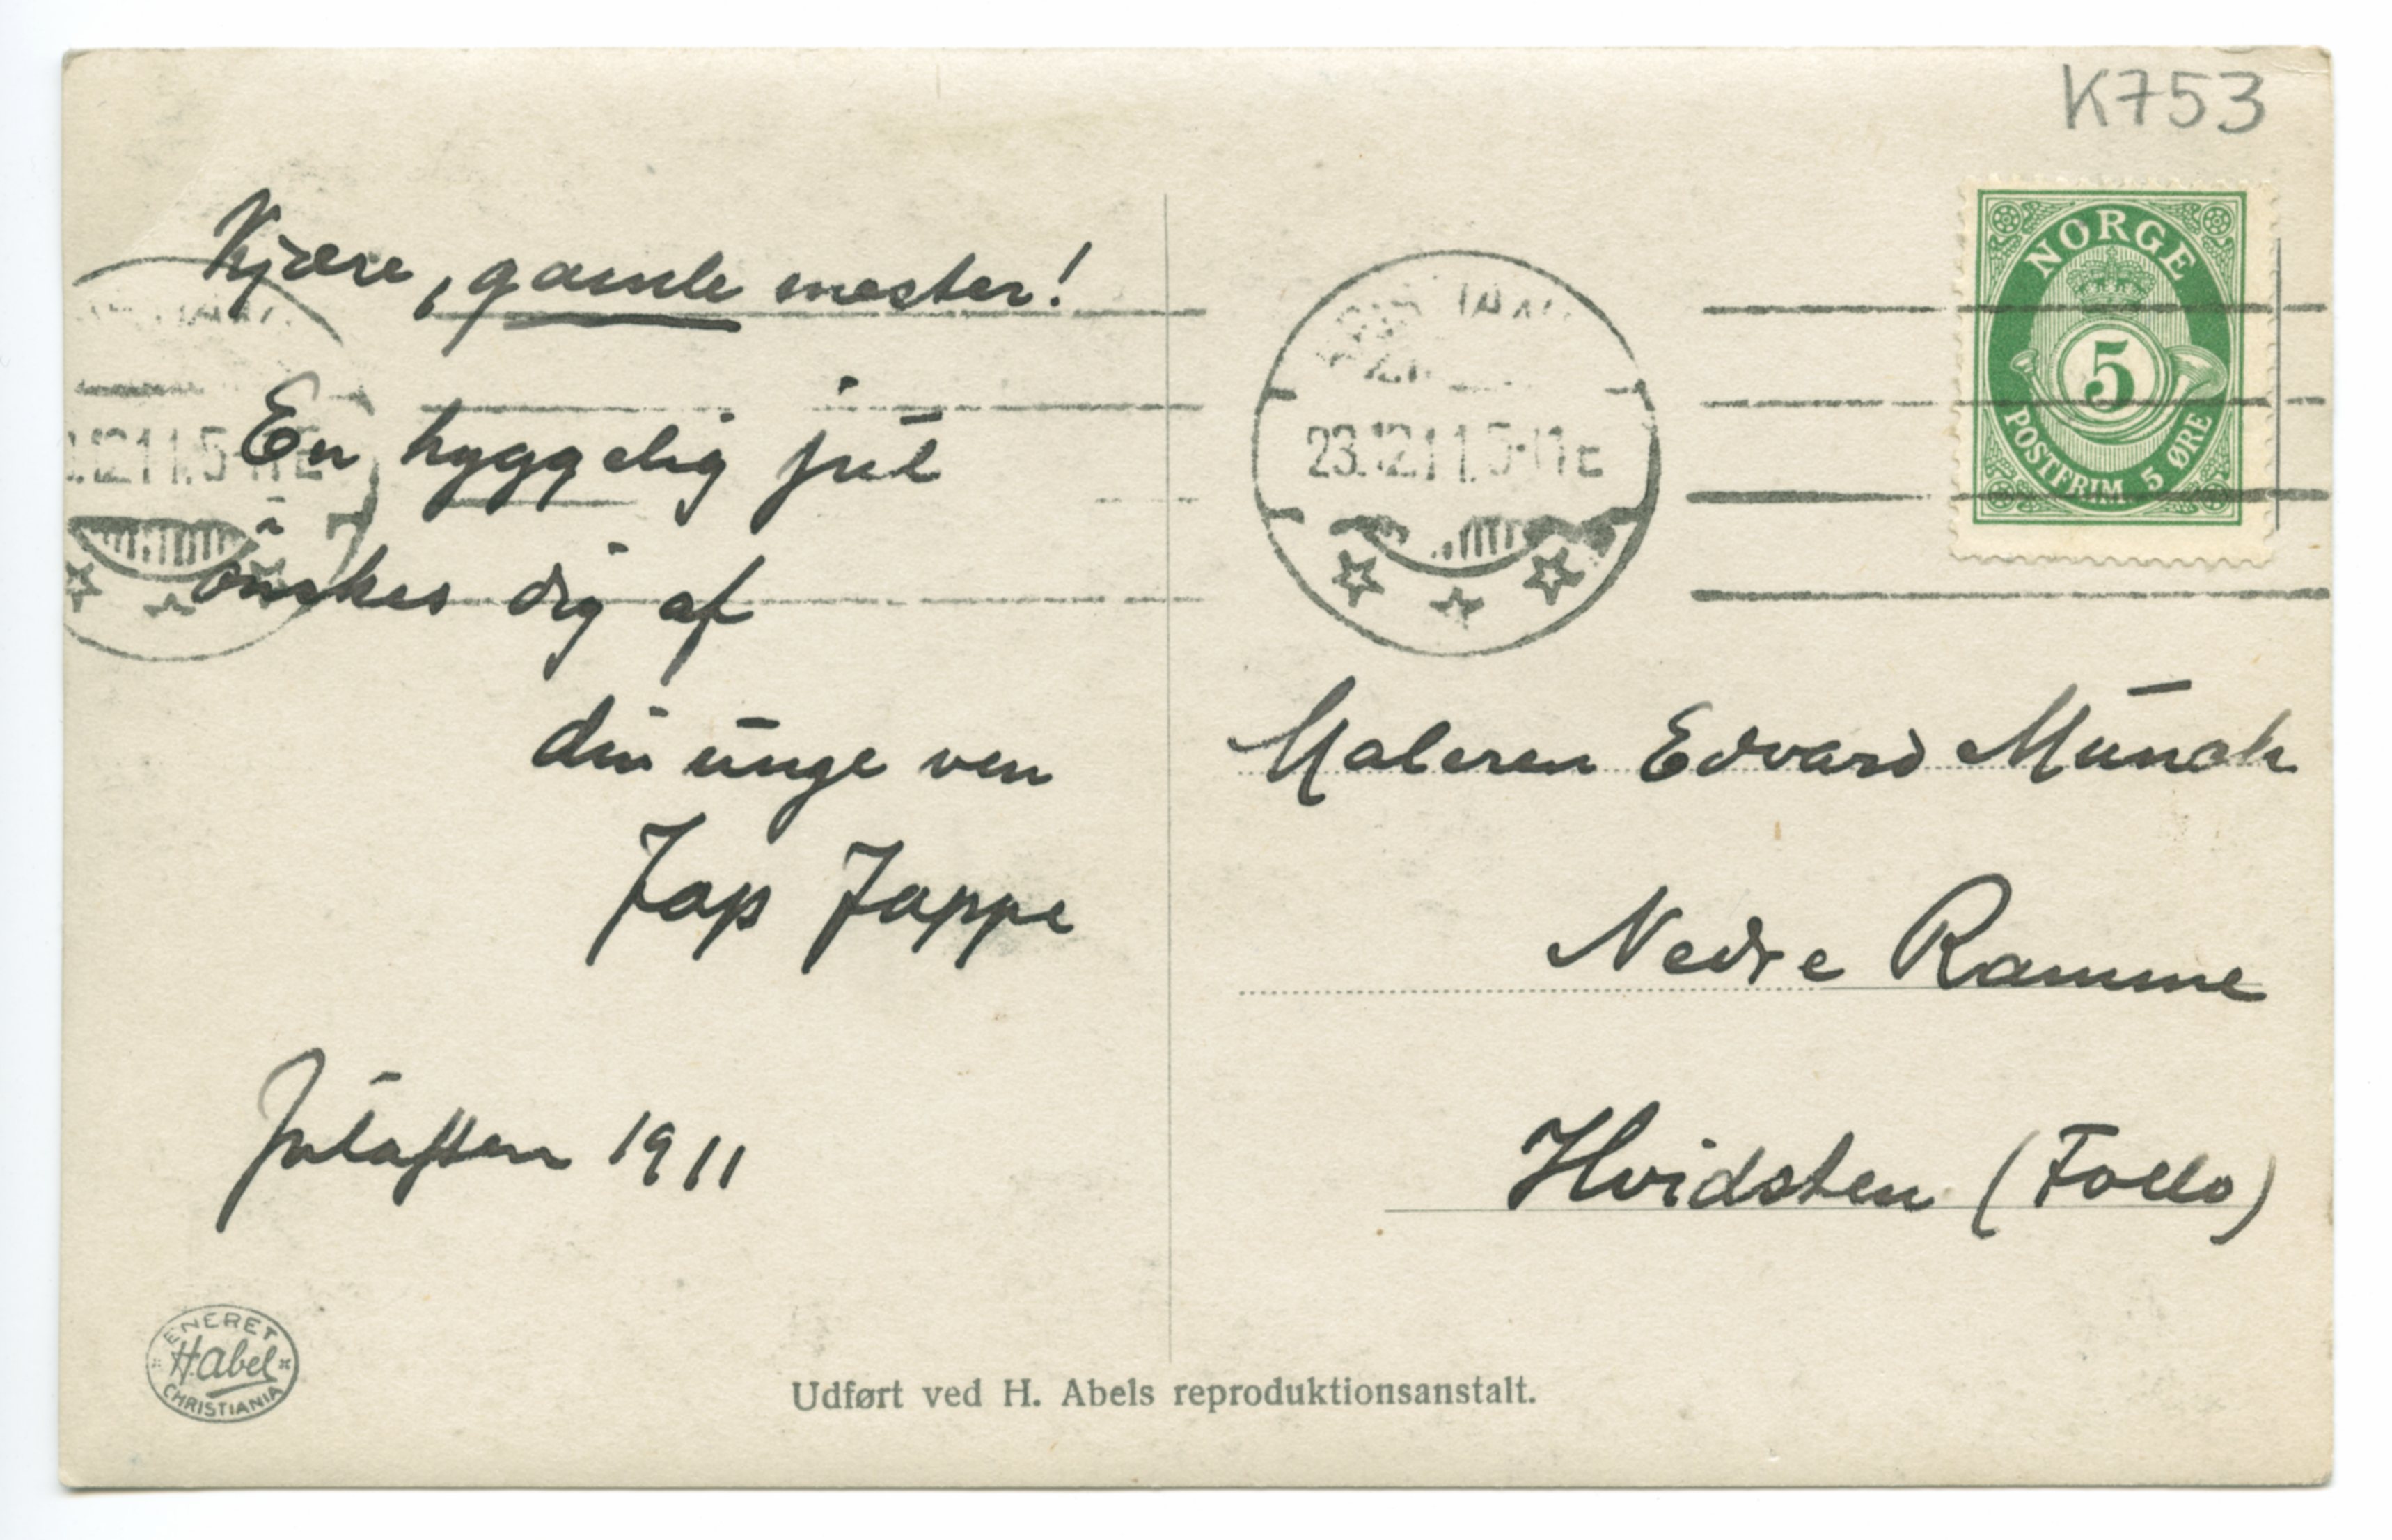 K753
Kjære, gamle mester!
En hyggelig jul
ønskes dig af
din unge ven
Jap Jappe
Julaften 1911
NORGE
5
POSTFRIM 5 ØRE
23.12.11.5-11E
.12.11.5-11E
Maleren Edvard Munch
Nedre Ramme
Hvidsten (Follo)
ENERET
H. Abel
CHRISTIANIA
Udført ved H. Abels reproduktionsanstalt.